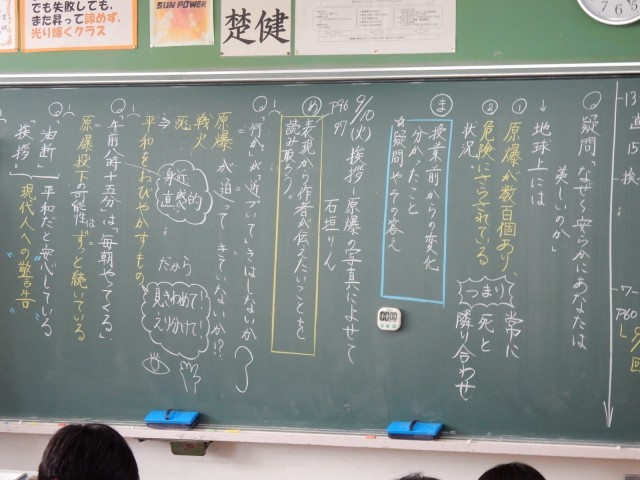 でも失敗しても、
また昇って諦めず、
光り輝くクラス
SUN POWER
楚健
P96
97
9/10(火) 挨拶―原爆の写真によせて
石垣りん
め
表現から作者が伝えたいことを
読み取ろう。
Q1
「何か」が「近づいて」きはしないか
=原爆が迫ってきていないか!?
戦火
死
⇒平和をおびやかすもの
身近
直感的
だから
見きわめて!
えり分けて!
Q1
「午前八時十五分」は「毎朝やってくる」
=原爆投下の可能性はずっと続いている
Q1
「油断」=平和だと安心している
「挨拶」 現代人への"警告"
ま
授業前からの変化
分かったこと
☆疑問やその答え
Q 疑問「なぜ安らかにあなたは
美しいのか」
↓地球上には
①原爆が数百個あり
②危険にさらされている
状況
つまり 常に
死と
隣り合わせ